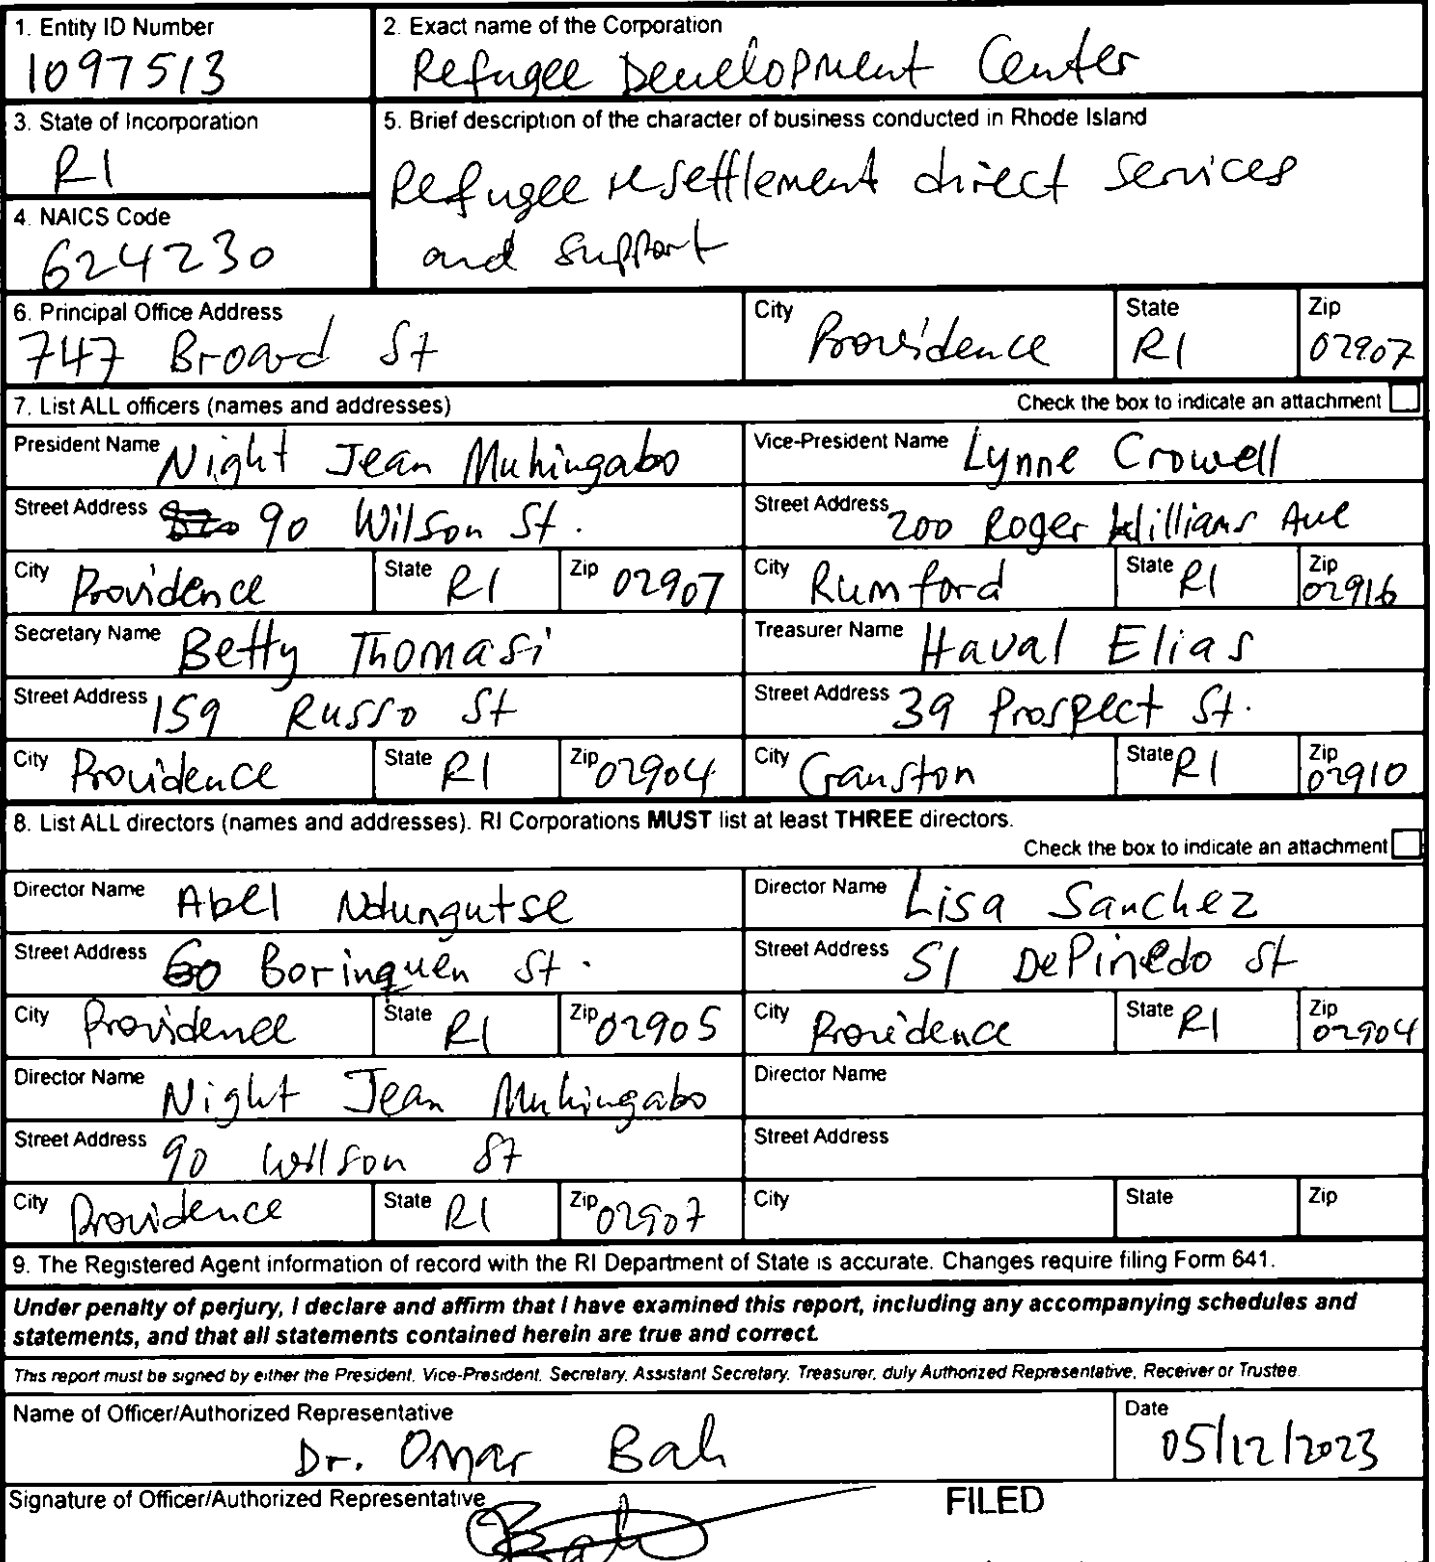 1. Entity ID Number
1097513
2. Exact name of the Corporation
Refugee Development Center
3. State of Incorporation
RI
4. NAICS Code
624230
5. Brief description of the character of business conducted in Rhode Island
Refugee resettlement direct services
and support
6. Principal Office Address
747 Broard St
City Providence
State RI
Zip 02907
7. List ALL officers (names and addresses)
Check the box to indicate an attachment
President Name Night Jean Muhingabo
Vice-President Name Lynne Crowell
Street Address 90 Wilson St.
Street Address 200 Roger Williams Ave
City Providence State RI Zip 02907
City Rumford State RI Zip 02916
Secretary Name Betty Thomasi
Treasurer Name Haval Elias
Street Address 159 Russo St
Street Address 39 Prospect St.
City Providence State RI Zip 02904
City Cranston State RI Zip 02910
8. List ALL directors (names and addresses). RI Corporations MUST list at least THREE directors.
Check the box to indicate an attachment
Director Name Abel Ndungutse
Director Name Lisa Sanchez
Street Address 60 Borinquen St.
Street Address 51 DePinedo St
City Providence State RI Zip 02905
City Providence State RI Zip 02904
Director Name Night Jean Muhingabo
Director Name
Street Address 90 Wilson St
Street Address
City Providence State RI Zip 02907
City State Zip
9. The Registered Agent information of record with the RI Department of State is accurate. Changes require filing Form 641.
Under penalty of perjury, I declare and affirm that I have examined this report, including any accompanying schedules and
statements, and that all statements contained herein are true and correct.
This report must be signed by either the President, Vice-President, Secretary, Assistant Secretary, Treasurer, duly Authorized Representative, Receiver or Trustee.
Name of Officer/Authorized Representative
Dr. Omar Bah
Date
05/12/2023
Signature of Officer/Authorized Representative
Bah
FILED